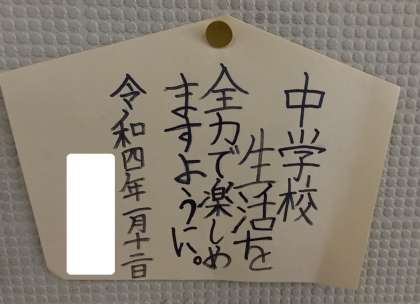 中学校
生活を
全力で楽しめ
ますように。
令和四年一月十二日